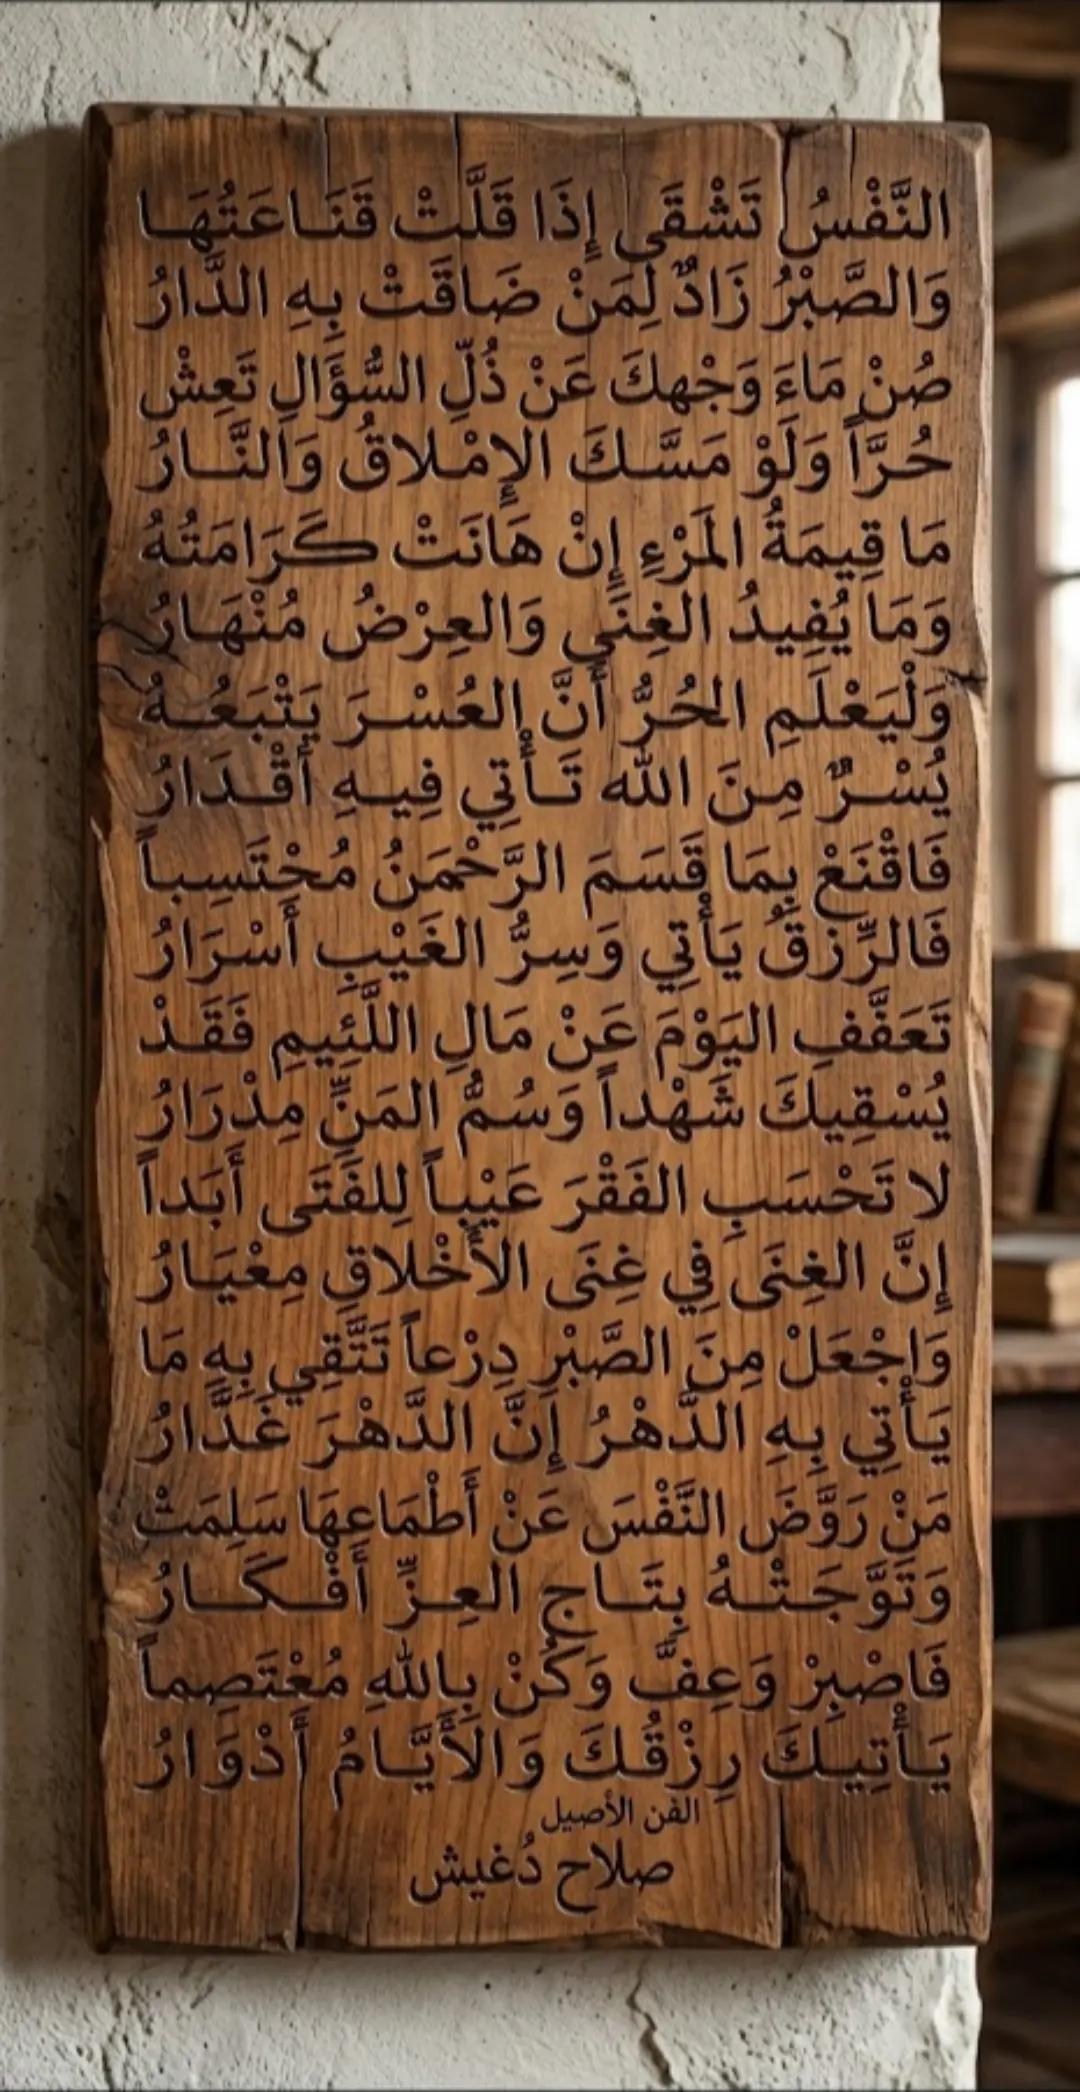 النَّفْسُ تَشْقَى إِذَا قَلَّتْ قَنَـاعَتُهَـا
وَالصَّبْرُ زَادٌ لِمَنْ ضَاقَتْ بِهِ الدَّارُ
صُنْ مَاءَ وَجْهِكَ عَنْ ذُلِّ السُّؤَالِ تَعِشْ
حُرَّاً وَلَوْ مَسَّـكَ الإِمْـلاقُ وَالنَّـارُ
مَا قِيمَةُ المَرْءِ إِنْ هَانَتْ كَرَامَتُهُ
وَمَا يُفِيدُ الغِنَى وَالعِرْضُ مُنْهَـارُ
وَلْيَعْلَمِ الحُرُّ أَنَّ العُسْـرَ يَتْبَعُـهُ
يُسْـرٌ مِـنَ اللَّه تَـأْتِي فِيـهِ أَقْـدَارُ
فَاقْنَعْ بِمَا قَسَمَ الرَّحْمَنُ مُحْتَسِباً
فَالرِّزْقُ يَأْتِي وَسِرُّ الغَيْبِ أَسْرَارُ
تَعَفَّفِ اليَوْمَ عَنْ مَالِ اللَّئِيمِ فَقَـدْ
يُسْقِيكَ شَهْداً وَسُمُّ المَنِّ مِدْرَارُ
لا تَحْسَبِ الفَقْرَ عَيْباً لِلفَتَى أَبَداً
إِنَّ الغِنَى فِي غِنَى الأَخْلاقِ مِعْيَـارُ
وَاجْعَلْ مِنَ الصَّبْرِ دِرْعاً تَتَّقِي بِهِ مَا
يَـأْتِي بِهِ الدَّهْرُ إِنَّ الدَّهْرَ غَدَّارُ
مَنْ رَوَّضَ النَّفْسَ عَنْ أَطْمَاعِهَا سَلِمَتْ
وَتَوَّجَـتْـهُ بِتَـاجِ العِـزِّ أَفْـكَـارُ
فَاصْبِرْ وَعِفَّ وَكُنْ بِاللَّهِ مُعْتَصِماً
يَـأْتِيـكَ رِزْقُـكَ وَالأَيَّـامُ أَدْوَارُ
الفن الأصيل
صلاح دُغيش